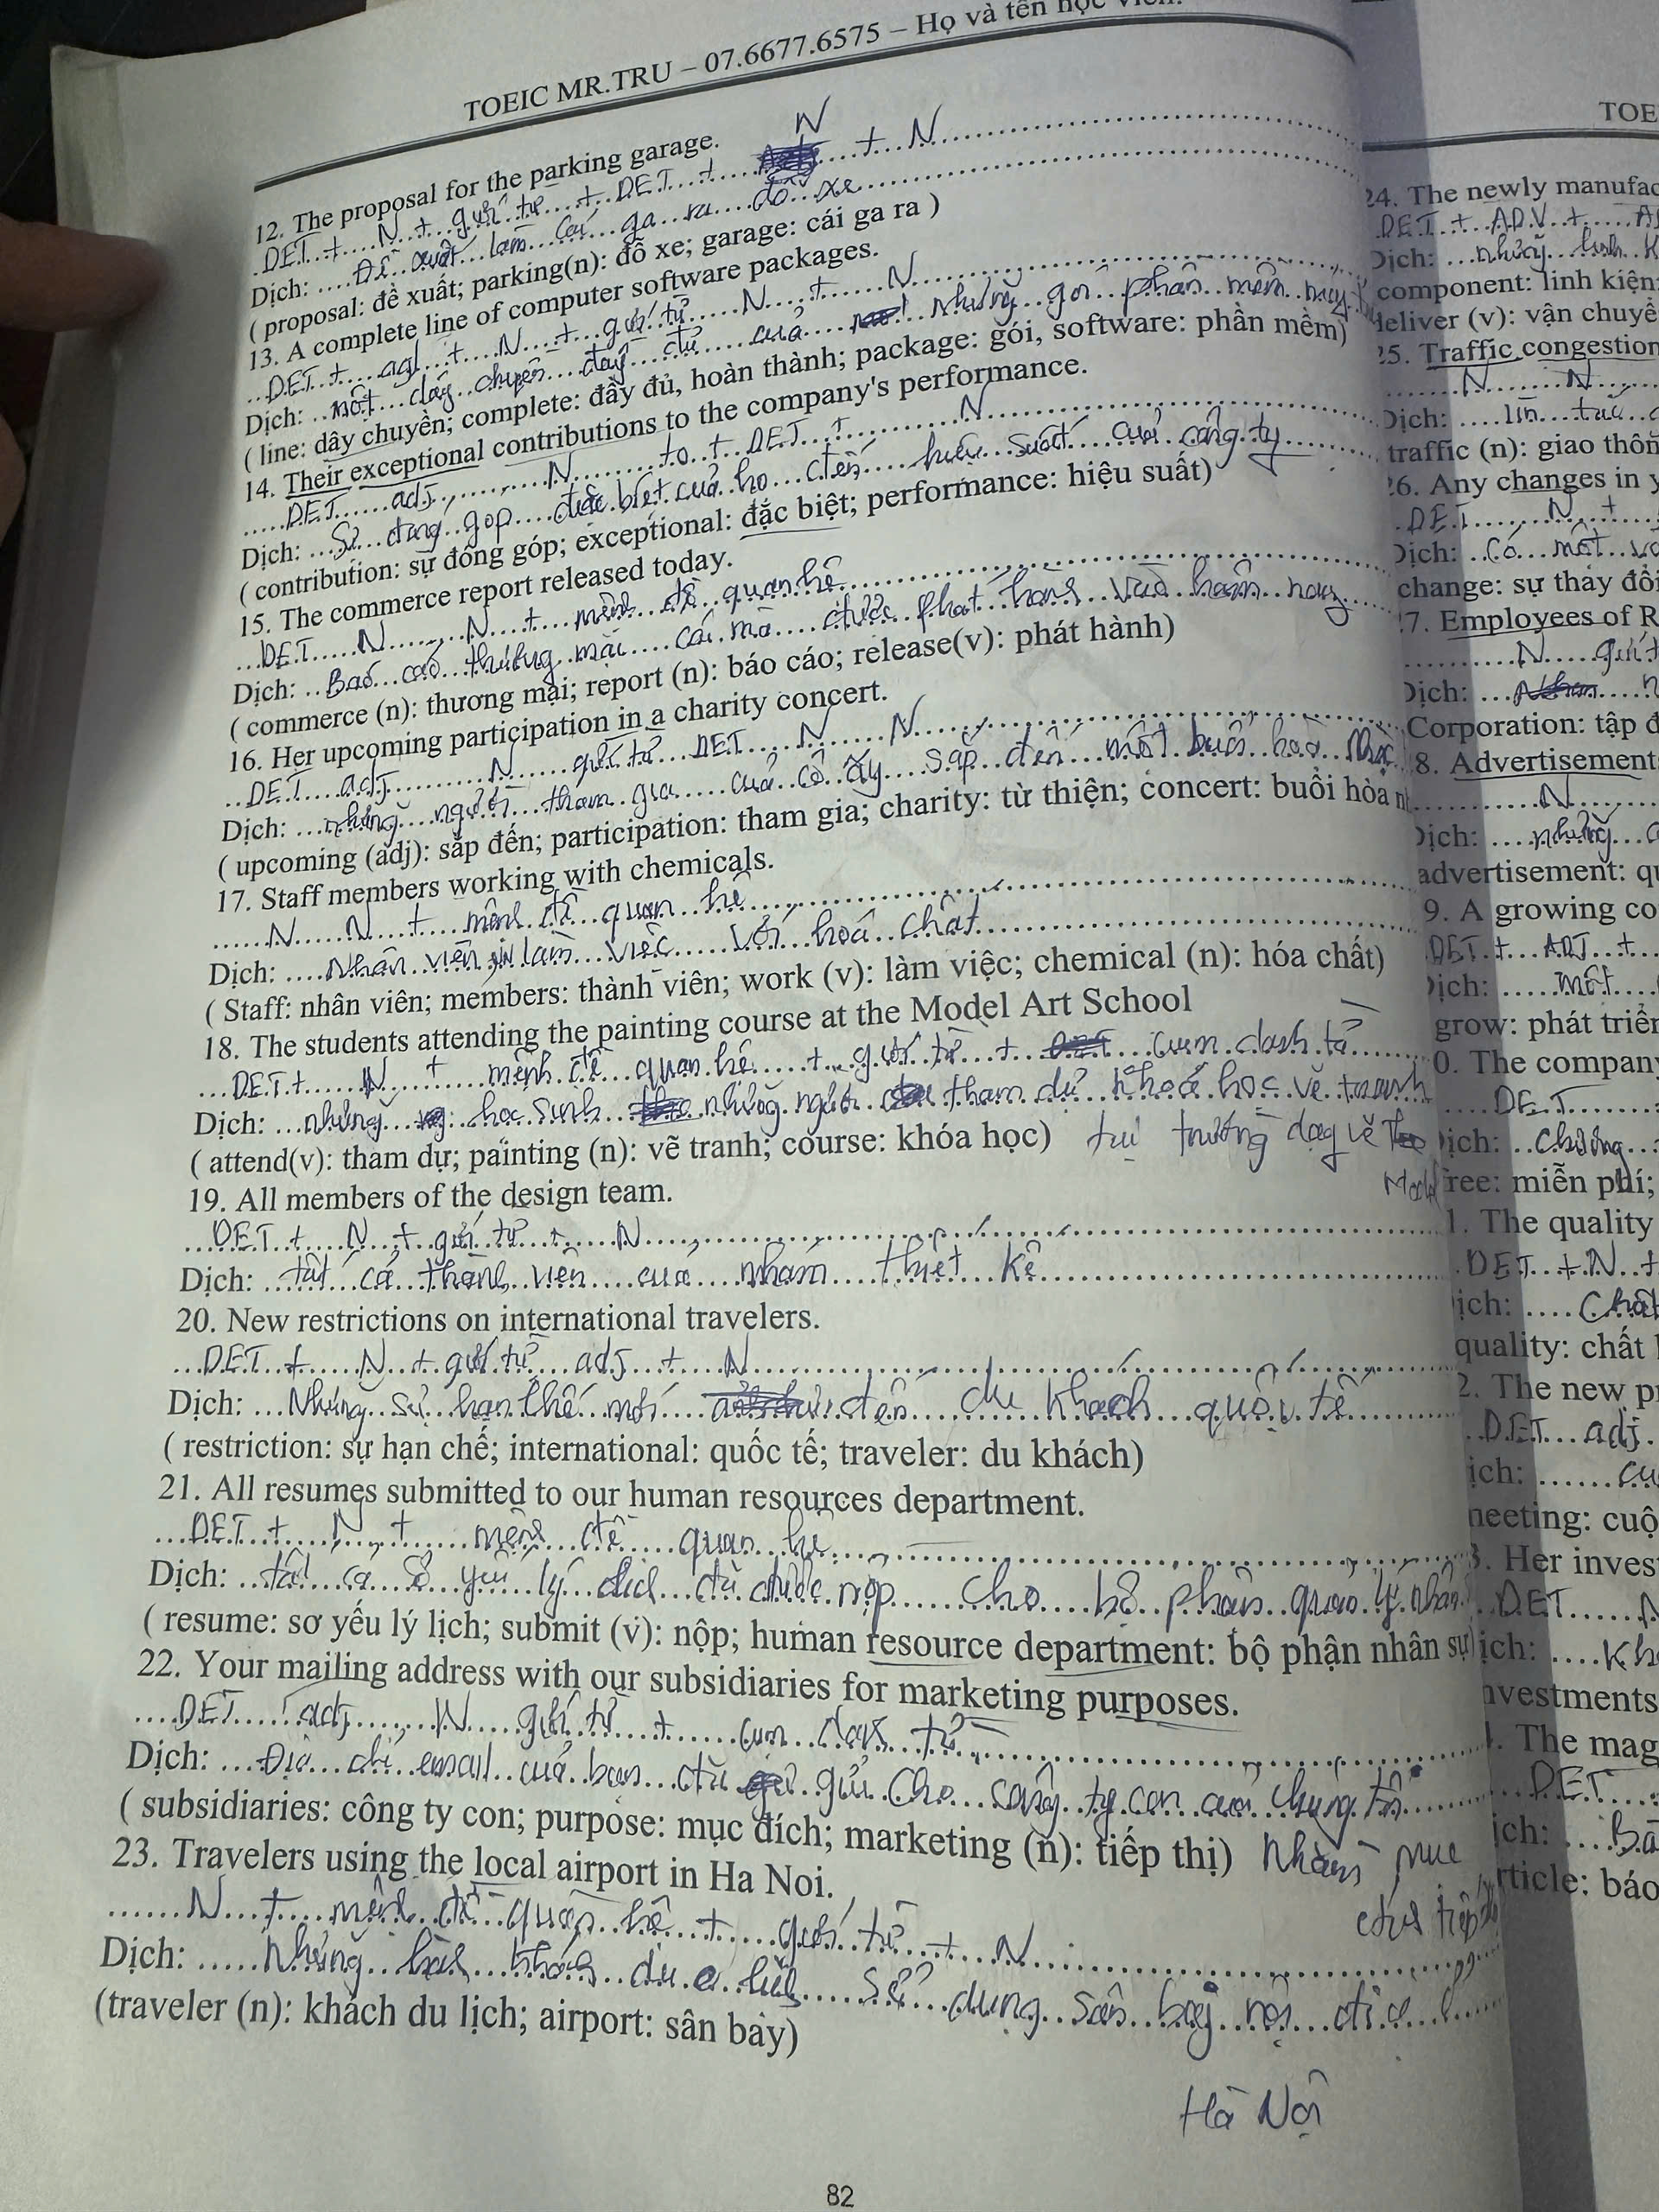 TOEIC MR.TRU – 07.6677.6575 – Họ và tên học viên:
12. The proposal for the parking garage.
N
DET + N + giới từ + DET + + N
Dịch: Đề xuất làm cái ga ra đỗ xe
( proposal: đề xuất; parking(n): đỗ xe; garage: cái ga ra )
13. A complete line of computer software packages.
DET + adj + N + giới từ N + N
Dịch: một dây chuyền đầy đủ của những gói phần mềm máy
( line: dây chuyền; complete: đầy đủ, hoàn thành; package: gói, software: phần mềm)
14. Their exceptional contributions to the company's performance.
DET adj N to + DET + N
Dịch: Sự đóng góp đặc biệt của họ đến hiệu suất của công ty
( contribution: sự đóng góp; exceptional: đặc biệt; performance: hiệu suất)
15. The commerce report released today.
DET N N + mệnh đề quan hệ
Dịch: Báo cáo thương mại cái mà được phát hành vào hôm nay
( commerce (n): thương mại; report (n): báo cáo; release(v): phát hành)
16. Her upcoming participation in a charity concert.
DET adj N giới từ DET N N
Dịch: những người tham gia của cô ấy sắp đến một buổi hoà nhạc
( upcoming (adj): sắp đến; participation: tham gia; charity: từ thiện; concert: buổi hòa
17. Staff members working with chemicals.
N N + mệnh đề quan hệ
Dịch: Nhân viên làm việc với hoá chất
( Staff: nhân viên; members: thành viên; work (v): làm việc; chemical (n): hóa chất)
18. The students attending the painting course at the Model Art School
DET + N + mệnh đề quan hệ + giới từ + cụm danh từ
Dịch: những học sinh những người tham dự khoá học vẽ tranh
( attend(v): tham dự; painting (n): vẽ tranh; course: khóa học) tại trường dạy vẽ
Model
19. All members of the design team.
DET + N + giới từ + N
Dịch: tất cả thành viên của nhóm thiết kế
20. New restrictions on international travelers.
DET + N + giới từ adj + N
Dịch: Những sự hạn chế mới đến du khách quốc tế
( restriction: sự hạn chế; international: quốc tế; traveler: du khách)
21. All resumes submitted to our human resources department.
DET + N + mệnh đề quan hệ
Dịch: tất cả sơ yếu lý lịch đã được nộp cho bộ phận quản lý nhân
( resume: sơ yếu lý lịch; submit (v): nộp; human resource department: bộ phận nhân sự)
22. Your mailing address with our subsidiaries for marketing purposes.
DET adj N giới từ + cụm danh từ
Dịch: Địa chỉ email của bạn đã gửi cho công ty con của chúng tôi
( subsidiaries: công ty con; purpose: mục đích; marketing (n): tiếp thị) Nhằm mục
đích tiếp thị
23. Travelers using the local airport in Ha Noi.
N + mệnh đề quan hệ + giới từ + N
Dịch: Những hành khách du lịch sử dụng sân bay nội địa
(traveler (n): khách du lịch; airport: sân bay)
Hà Nội
82
TOE
24. The newly manufac
DET + ADV +
Dịch: những linh
component: linh kiện
deliver (v): vận chuyể
25. Traffic congestion
N N
Dịch:
traffic (n): giao thôn
26. Any changes in y
DET N +
Dịch: Có một
change: sự thay đổi
27. Employees of R
N giới
Dịch:
Corporation: tập đ
8. Advertisement
N
Dịch: những
advertisement: qu
9. A growing co
DET + ADJ +
Dịch: một
grow: phát triển
0. The company
DET
ịch: chương
free: miễn phí;
1. The quality
DET + N +
ịch: Chất
quality: chất l
2. The new p
DET adj
ịch:
meeting: cuộ
3. Her inves
DET
ịch:
nvestments
. The mag
DET
ịch:
rticle: báo